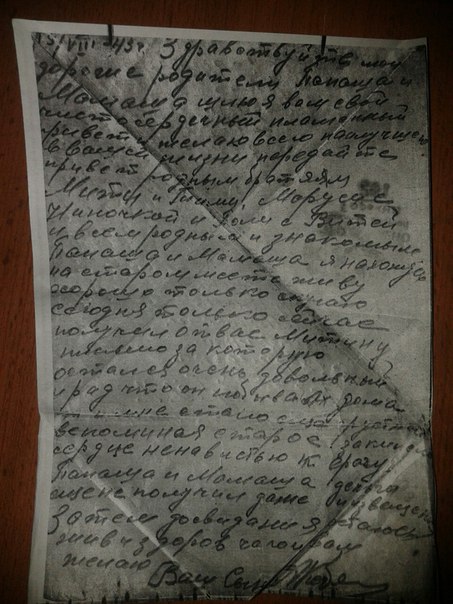 15/VIII-43г. Здравствуйте мои
дорогие родители Папаша и
Мамаша шлю я вам свой
чистосердечный пламенный
привет и желаю всего наилучшего
в вашей жизни передайте
привет родным братьям
Мити и Маруси с
Ниночкой и с Витей
и всем родным и знакомым
Папаша и Мамаша я нахожусь
на старом месте живу
хорошо только скучаю
сегодня только сейчас
получил от вас Митину
письмо за которую
остался очень довольный
и рад что он побывал дома
и мне стало грустно
вспоминая старое
сердце ненавистью к врагу
Папаша и Мамаша деньги
еще не получил даже извещения
Затем досвидания остаюсь
жив и здоров чего и вам
желаю
Ваш Сын